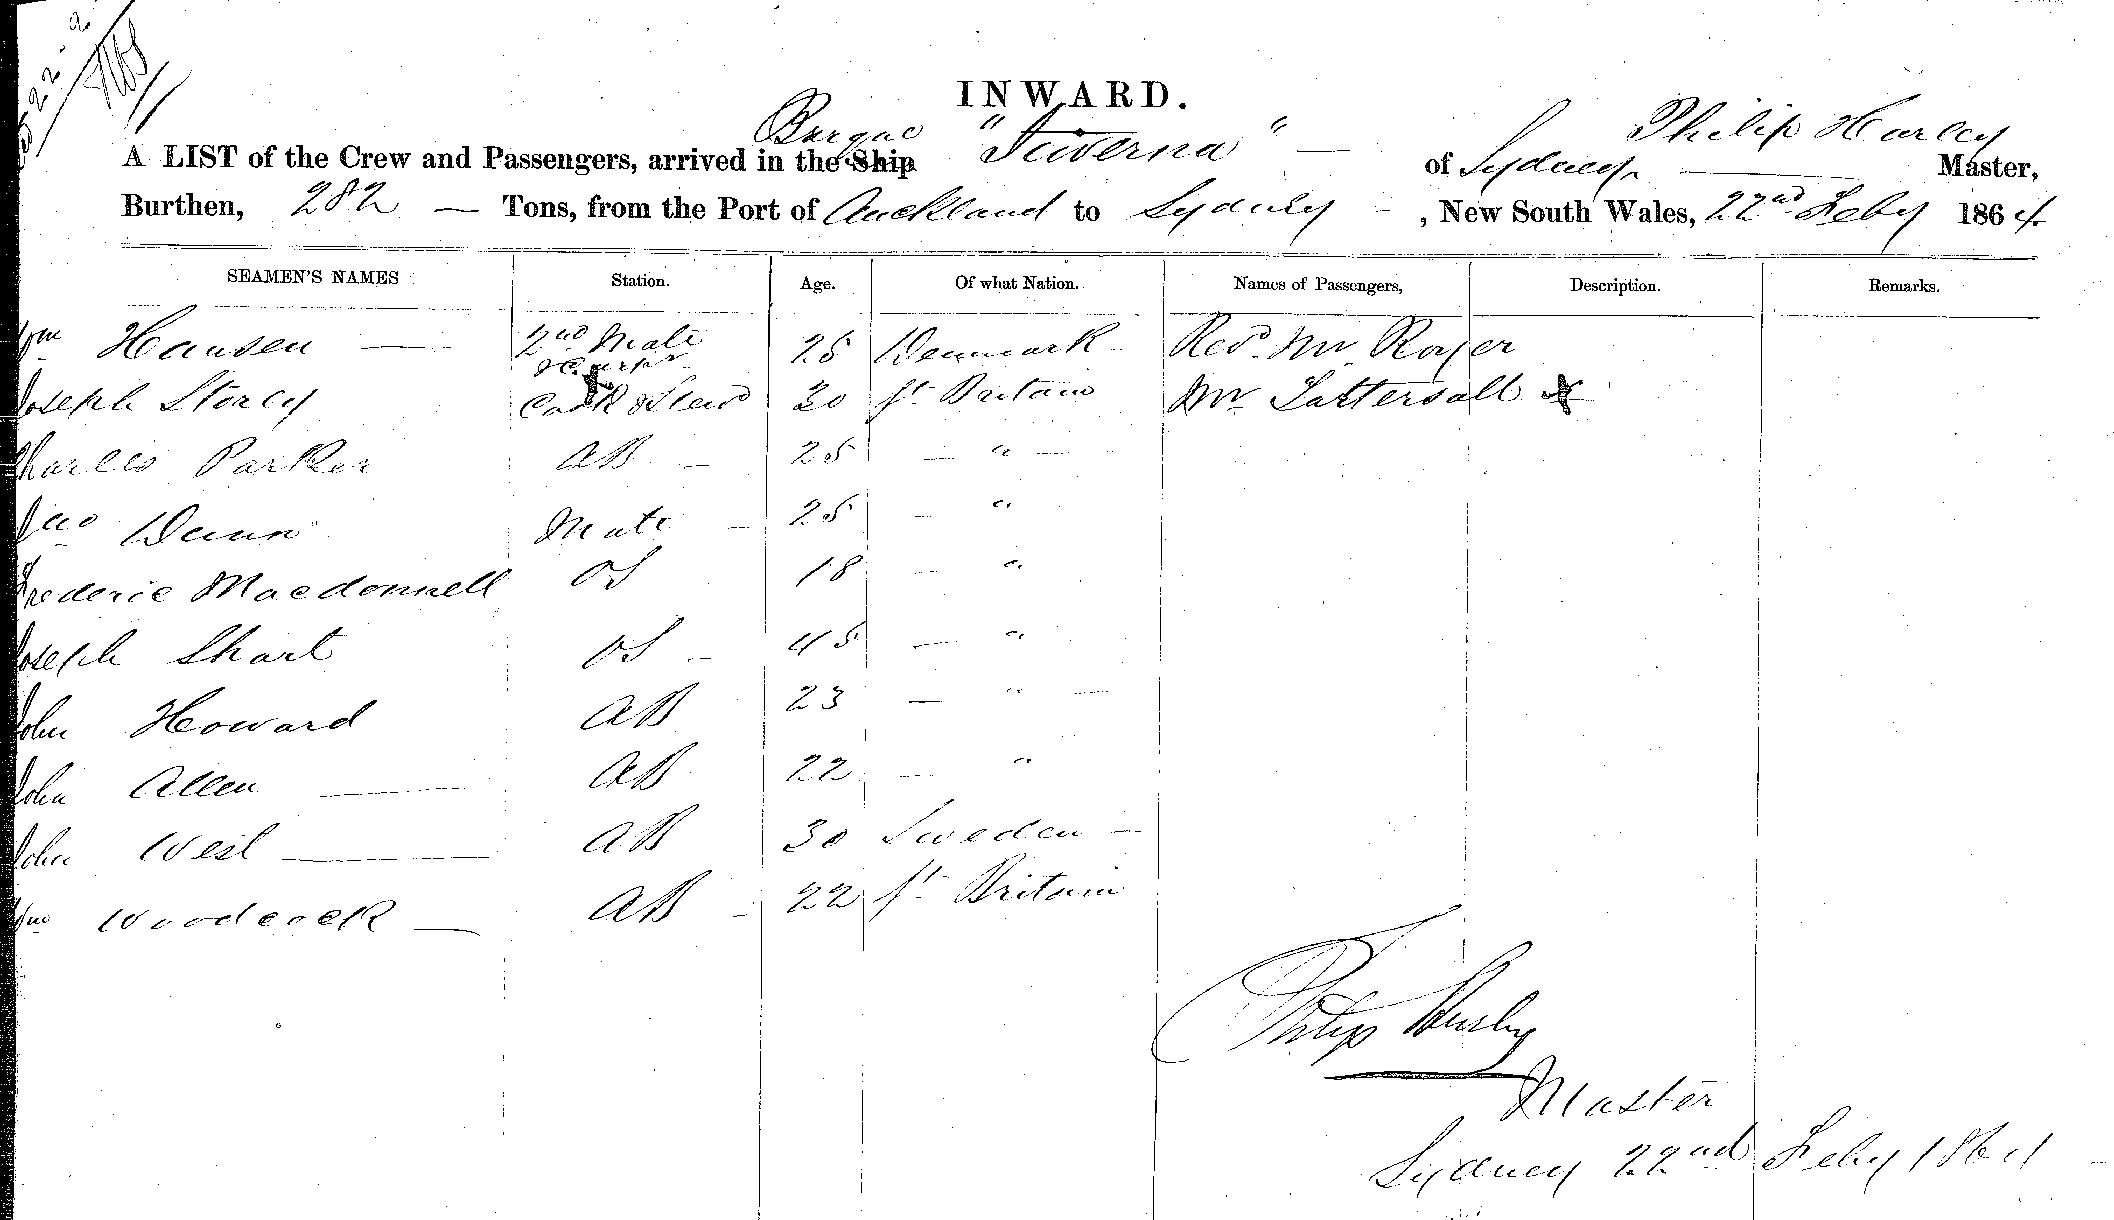 22-2
INWARD.
Barque
A LIST of the Crew and Passengers, arrived in the Ship "Twerna" — of Sydney — Philip Hurley Master,
Burthen, 282 — Tons, from the Port of Auckland to Sydney - , New South Wales, 22nd Feby 1864
SEAMEN'S NAMES Station. Age. Of what Nation. Names of Passengers, Description. Remarks.
Wm Hansen — 2nd Mate 25 Denmark Revd. Mr Royer
& Carpr
Joseph Storey Cook & Stewd 30 Gt Britain Mr Tattersall x
Charles Parker AB — 25 — " —
Jno Dunn Mate — 25 — "
Frederic Macdonnell OS 18 — "
Joseph Short OS — 45 — "
John Howard AB 23 — " —
John Allen — AB 22 — "
John West — AB 30 Sweden —
Wm Woodcock — AB - 22 Gt Britain
Philip Hurley
Master
Sydney 22nd Feby 1864